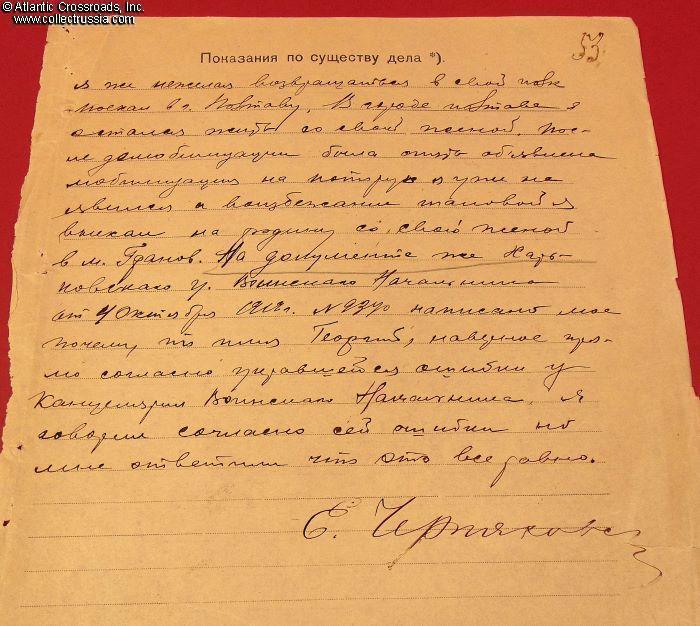 © Atlantic Crossroads, Inc.
www.collectrussia.com
53
Показания по существу дела *).
я же нежелая возвращаться в свой полк
поехал в г. Полтаву. В городе Полтаве я
остался жить со своей женой. Пос-
ле демобилизации была опять объявлена
мобилизация на которую я уже не
явился а воизбежании таковой я
выехал на родину со свою женой
в м. Гранов. На документе же Харь-
ковскаго у. Воинскаго Начальника
от 4 Октября 1918 г. № написано мое
почему то имя Георгий, наверное пря-
мо согласно укравшейся ошибки у
Канцелярии Воинскаго Начальника. Я
говорил согласно сей ошибки но
мне ответили что это все равно.
Е. Черняховск